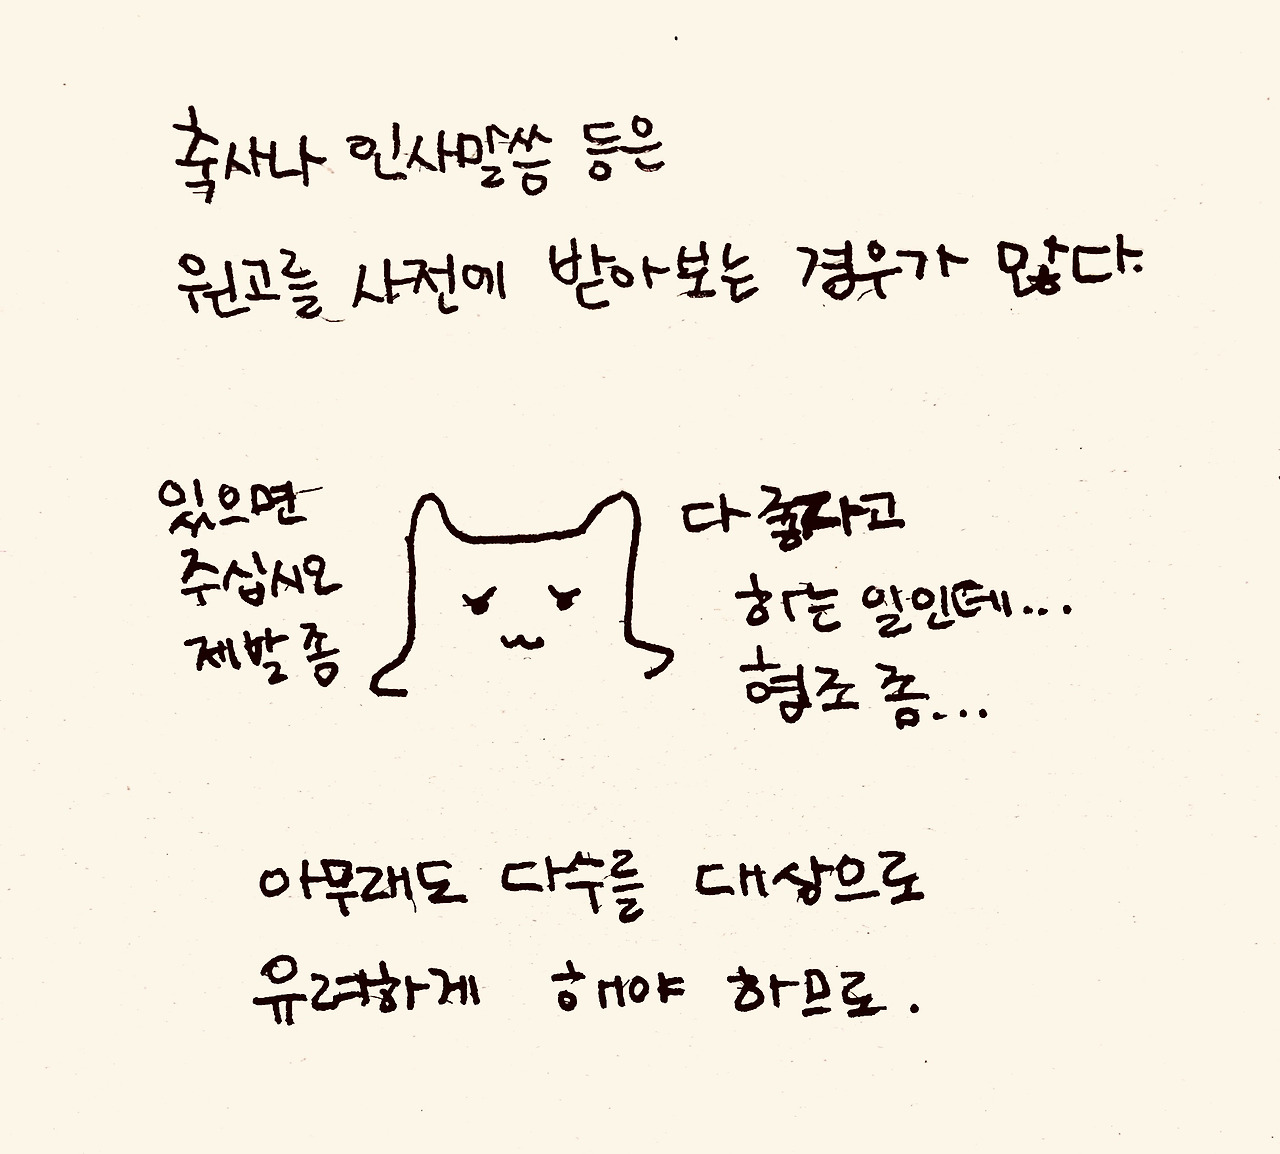 축사나 인사말씀 등은
원고를 사전에 받아보는 경우가 많다.
있으면
주십시오
제발 좀
다 좋자고
하는 일인데...
협조 좀...
아무래도 다수를 대상으로
유려하게 해야 하므로.